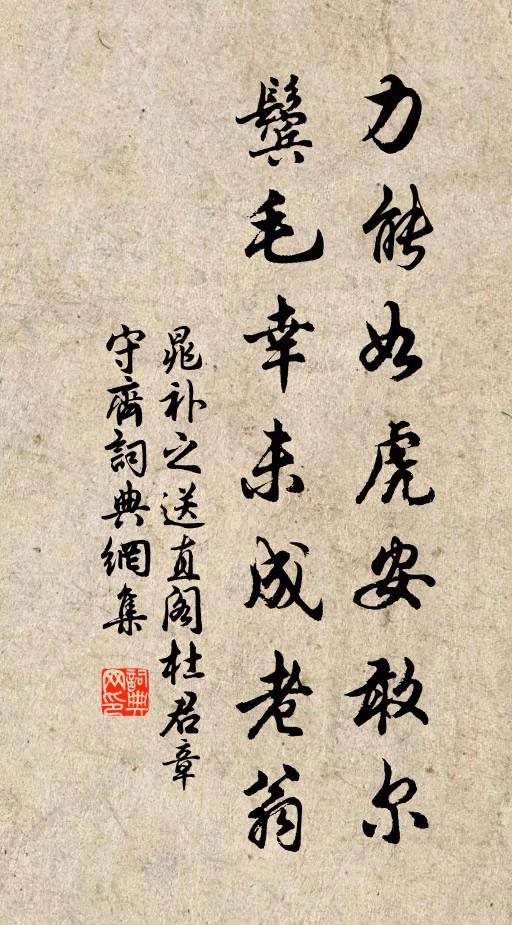 力能如虎安敢尔
鬓毛幸未成老翁
晁补之送直阁杜君章
守齋詞典網集
詞典网印